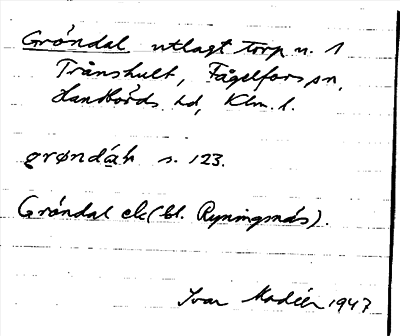 Gröndal utlagt torp u. 1
Trånshult, Fågelfors sn,
Handbörds hd, Klm. l.
grøndáh s. 123.
Gröndal ek (bl. Ryningsnäs).
Ivar Modéer 1947